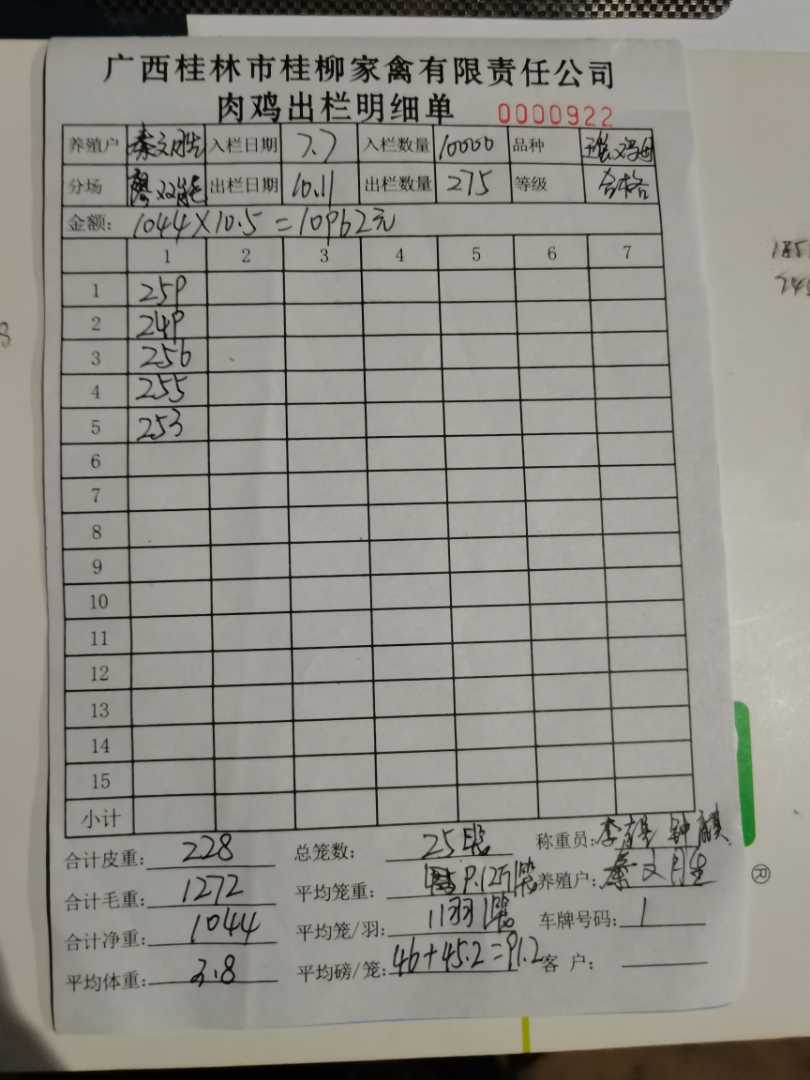 广西桂林市桂柳家禽有限责任公司
肉鸡出栏明细单 0000922
养殖户 秦文胜 入栏日期 7.7 入栏数量 10000 品种
分场 廖双能 出栏日期 10.11 出栏数量 275 等级 合格
金额: 1044×10.5=10962元
1 2 3 4 5 6 7
1 259
2 249
3 256
4 255
5 253
6
7
8
9
10
11
12
13
14
15
小计
合计皮重: 228 总笼数: 25 称重员: 李 钟
合计毛重: 1272 平均笼重: 9.12 养殖户: 秦文胜
合计净重: 1044 平均笼/羽: 11羽 车牌号码: 1
平均体重: 3.8 平均磅/笼: 46+45.2=91.2 客 户:
®